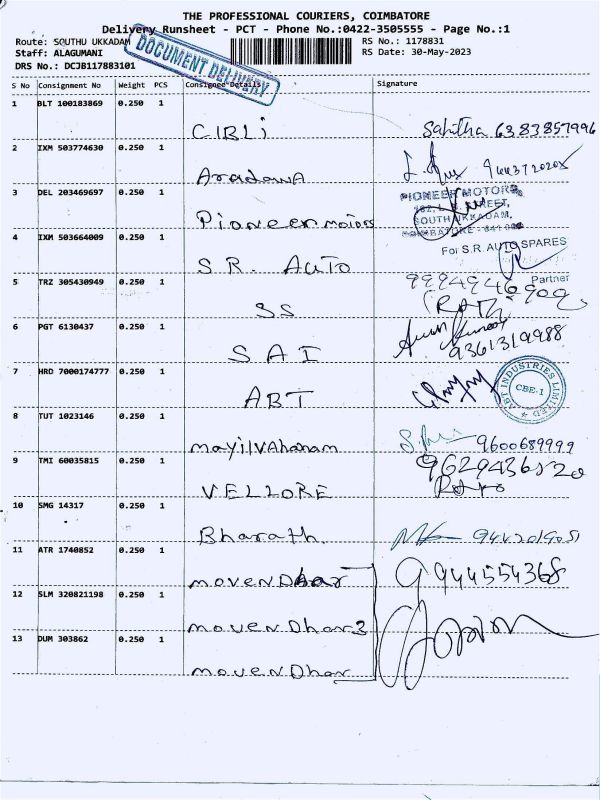 THE PROFESSIONAL COURIERS, COIMBATORE
Delivery Runsheet - PCT - Phone No.:0422-3505555 - Page No.:1
Route: SOUTHU UKKADAM
RS No.: 1178831
Staff: ALAGUMANI
RS Date: 30-May-2023
DRS No.: DCJB117883101
DOCUMENT DELIVERY
S No Consignment No Weight PCS Consignee Details Signature
1 BLT 100183869 0.250 1
CIBLi Sahitha 6383857996
2 IXM 503774630 0.250 1
AradawA
3 DEL 203469697 0.250 1
PIONEER MOTORS
STREET,
SOUTH UKKADAM,
COIMBATORE - 641 001
Pioneer motors
4 IXM 503664009 0.250 1
For S.R. AUTO SPARES
S R. AUTO
Partner
5 TRZ 305430949 0.250 1
SS
6 PGT 6130437 0.250 1
SAI 9361319988
7 HRD 7000174777 0.250 1
ABT INDUSTRIES LIMITED
CBE-1
ABT
8 TUT 1023146 0.250 1
mayilvAhanam 9600689999
9 TMI 60035815 0.250 1
9629436520
VELLORE
10 SMG 14317 0.250 1
Bharath.
11 ATR 1740852 0.250 1
movenDhar 9944554368
12 SLM 320821198 0.250 1
movenDhar 3
13 DUM 303862 0.250 1
movenDhar